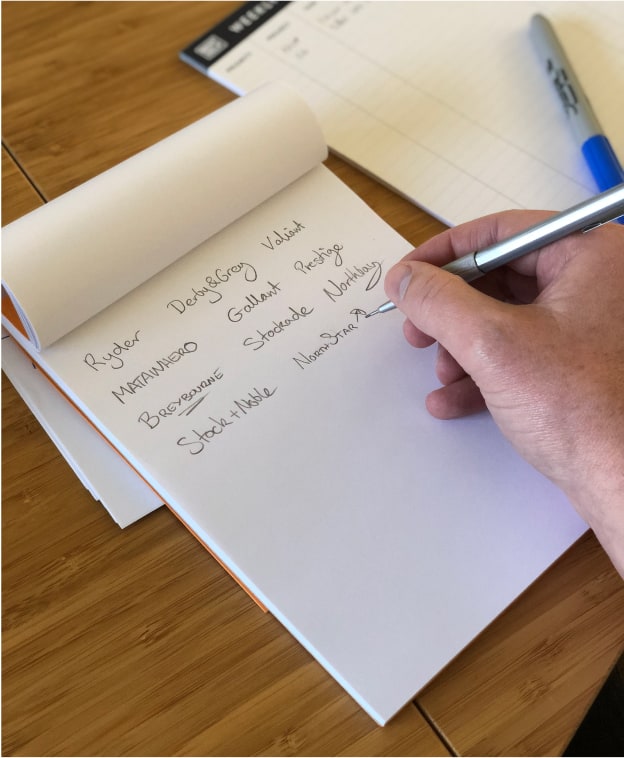 WEEKL
Ryder Derby&Grey Valiant
MATAINHERO Gallant Prestige
BREYBOURNE Stockade Northbay
Stock+Noble NORTHSTAR